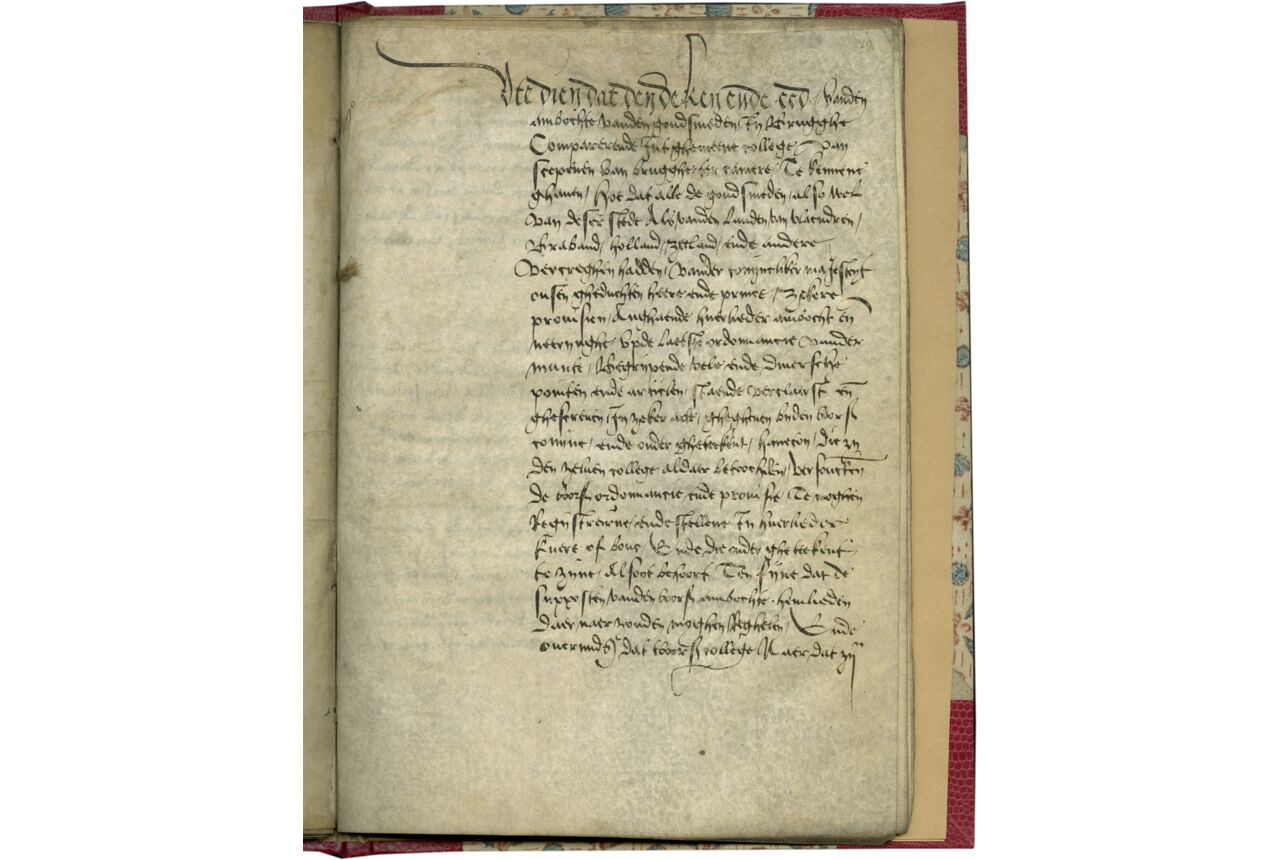 Ute dien dat den deken ende eed vanden
ambochte vanden goudsmeden in Brugghe
Comparerende int ghemeene college van
scepenen van brugghe ter camere / Te kennene
ghaven / Hoe dat alle de goudsmeden / also wel
van deser stede Als vanden Landen van vlaendren /
Braband / holland / zeeland / ende andere
vercreghen hadden / vander conyncliker majesteyt
onsen gheduchten heere ende prince / zekere
provisien / Anghaende huerlieder ambocht en
neerynghe / up de laetste ordonnancie vander
munte / Begrypende vele ende diversche
pointen ende articlen / staende verclaerst en
ghescreven / In zeker acte / ghegheven byden voors
conync / ende onder gheteekent / haneton / die zy
den zelven college aldaer betoochden / versouckende
de voors ordonnancie ende provisie / Te moghen
Registreirne / ende stellene In huerlieder
kuere of bouc / Ende die onder gheteekent
te zyne / Alsoot behoort / Ten fyne dat de
supposten vanden voors ambochte / hemlieden
daer naer zouden moghen Regheleren / Ende
overmids) dat tvoors college Naer dat zij